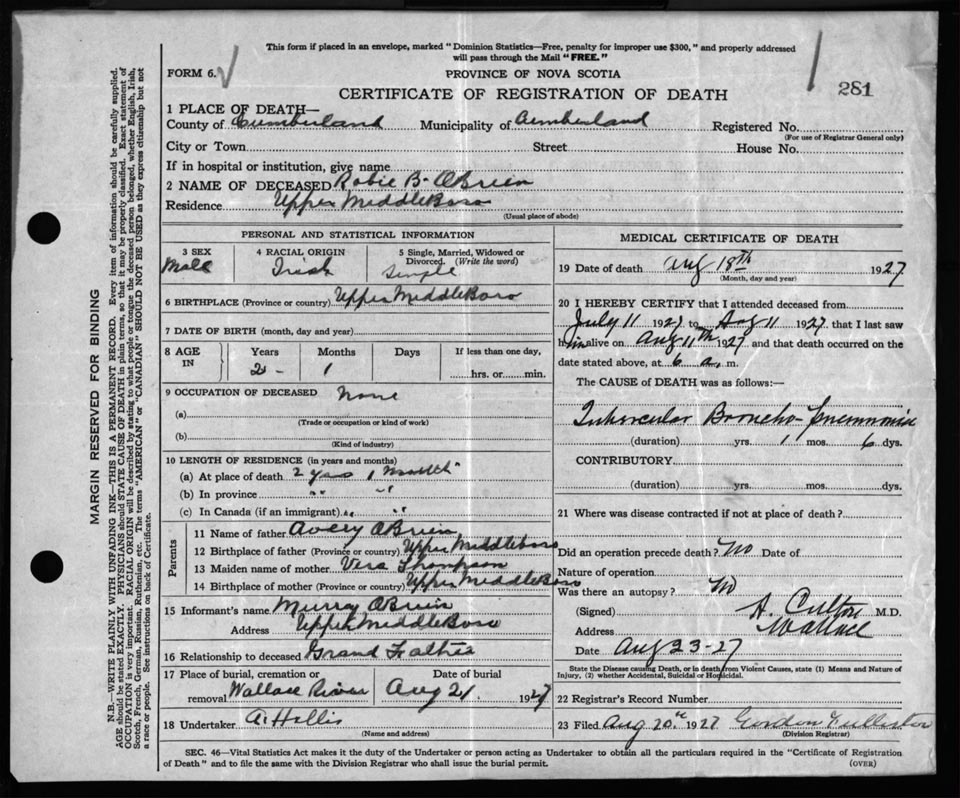 This form if placed in an envelope, marked "Dominion Statistics—Free, penalty for improper use $300," and properly addressed
will pass through the Mail "FREE."
FORM 6.
PROVINCE OF NOVA SCOTIA
281
CERTIFICATE OF REGISTRATION OF DEATH
1 PLACE OF DEATH—
County of Cumberland Municipality of Cumberland Registered No.
(For use of Registrar General only)
City or Town Street House No.
If in hospital or institution, give name
2 NAME OF DECEASED Robie B. OBrien
Residence Upper Middleboro
(Usual place of abode)
PERSONAL AND STATISTICAL INFORMATION
3 SEX 4 RACIAL ORIGIN 5 Single, Married, Widowed or
Divorced. (Write the word)
Male Irish Single
6 BIRTHPLACE (Province or country) Upper Middleboro
7 DATE OF BIRTH (month, day and year)
8 AGE IN Years Months Days If less than one day,
2 - 1 hrs. or min.
9 OCCUPATION OF DECEASED None
(a)
(Trade or occupation or kind of work)
(b)
(Kind of industry)
10 LENGTH OF RESIDENCE (in years and months)
(a) At place of death 2 yrs 1 Month
(b) In province " "
(c) In Canada (if an immigrant) " "
Parents
11 Name of father Avery OBrien
12 Birthplace of father (Province or country) Upper Middleboro
13 Maiden name of mother Vera Thompson
14 Birthplace of mother (Province or country) Upper Middleboro
15 Informant's name Murray OBrien
Address Upper Middleboro
16 Relationship to deceased Grand Father
17 Place of burial, cremation or Date of burial
removal Wallace River Aug 21. 1927
18 Undertaker A. Hollis
(Name and address)
MEDICAL CERTIFICATE OF DEATH
19 Date of death Aug 18th 1927
(Month, day and year)
20 I HEREBY CERTIFY that I attended deceased from
July 11 1927 to Aug 11 1927 that I last saw
him alive on Aug 11th 1927 and that death occurred on the
date stated above, at 6 a. m.
The CAUSE OF DEATH was as follows:—
Tubercular Broncho Pneumonia
(duration) yrs. 1 mos. 6 dys.
CONTRIBUTORY
(duration) yrs. mos. dys.
21 Where was disease contracted if not at place of death?
Did an operation precede death? No Date of
Nature of operation
Was there an autopsy? No
(Signed) A. M.D.
Address Wallace
Date Aug 23-27
State the Disease causing Death, or in death from Violent Causes, state (1) Means and Nature of
Injury, (2) whether Accidental, Suicidal or Homicidal.
22 Registrar's Record Number
23 Filed Aug 20th 1927 Gordon
(Division Registrar)
SEC. 46—Vital Statistics Act makes it the duty of the Undertaker or person acting as Undertaker to obtain all the particulars required in the "Certificate of Registration
of Death" and to file the same with the Division Registrar who shall issue the burial permit. (OVER)
MARGIN RESERVED FOR BINDING
N.B.—WRITE PLAINLY WITH UNFADING INK—THIS IS A PERMANENT RECORD. Every item of information should be carefully supplied.
AGE should be stated EXACTLY. PHYSICIANS should STATE CAUSE OF DEATH in plain terms, so that it may be properly classified. Exact statement of
OCCUPATION is very important. RACIAL ORIGIN will be described by stating to what people or tongue the deceased person belonged, whether English, Irish,
Scotch, French, German, Russian, Ruthenian, etc. The terms "AMERICAN" or "CANADIAN" SHOULD NOT BE USED as they express citizenship but not
a race or people. See instructions on back of Certificate.